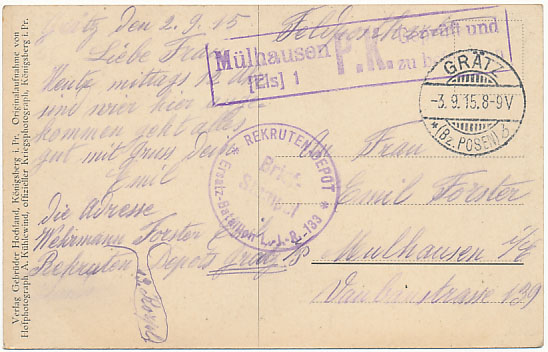 Grätz den 2.9.15
Feldpostkarte
Liebe Frau
Heute mittags 12
sind wir hier
kommen geht alles
gut mit Gruss
Emil
Die Adresse
Wehrmann Forster
Rekruten Depot Grätz
Mülhausen
[Els] 1
P.K.
Geprüft und
zu
GRÄTZ
-3.9.15.8-9V
*(Bz. POSEN) b
* REKRUTEN-DEPOT *
Brief
Stempel
Ersatz-Bataillon L.-I.-R.-133
Frau
Emil Forster
Mulhausen i/E
Vaubanstrasse 139
Verlag Gebrüder Hochland, Königsberg i. Pr. Originalaufnahme von
Hofphotograph A. Kühlewind, offizieller Kriegsphotograph, Königsberg i. Pr.